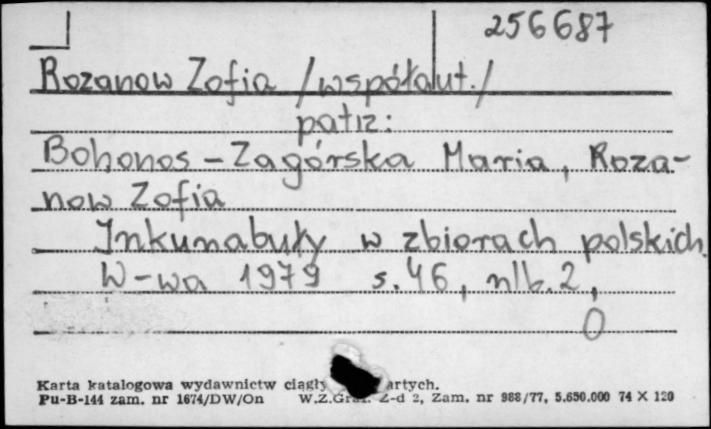 256687
Rozanow Zofia /współaut./
patrz:
Bohonos – Zagórska Maria, Roza-
now Zofia
Inkunabuły w zbiorach polskich.
W-wa 1979 s. 46, nlb. 2,
0
Karta katalogowa wydawnictw
Pu-B-144 zam. nr 1674/DW/On Z-d 2, Zam. nr 988/77, 5.650.000 74 X 120